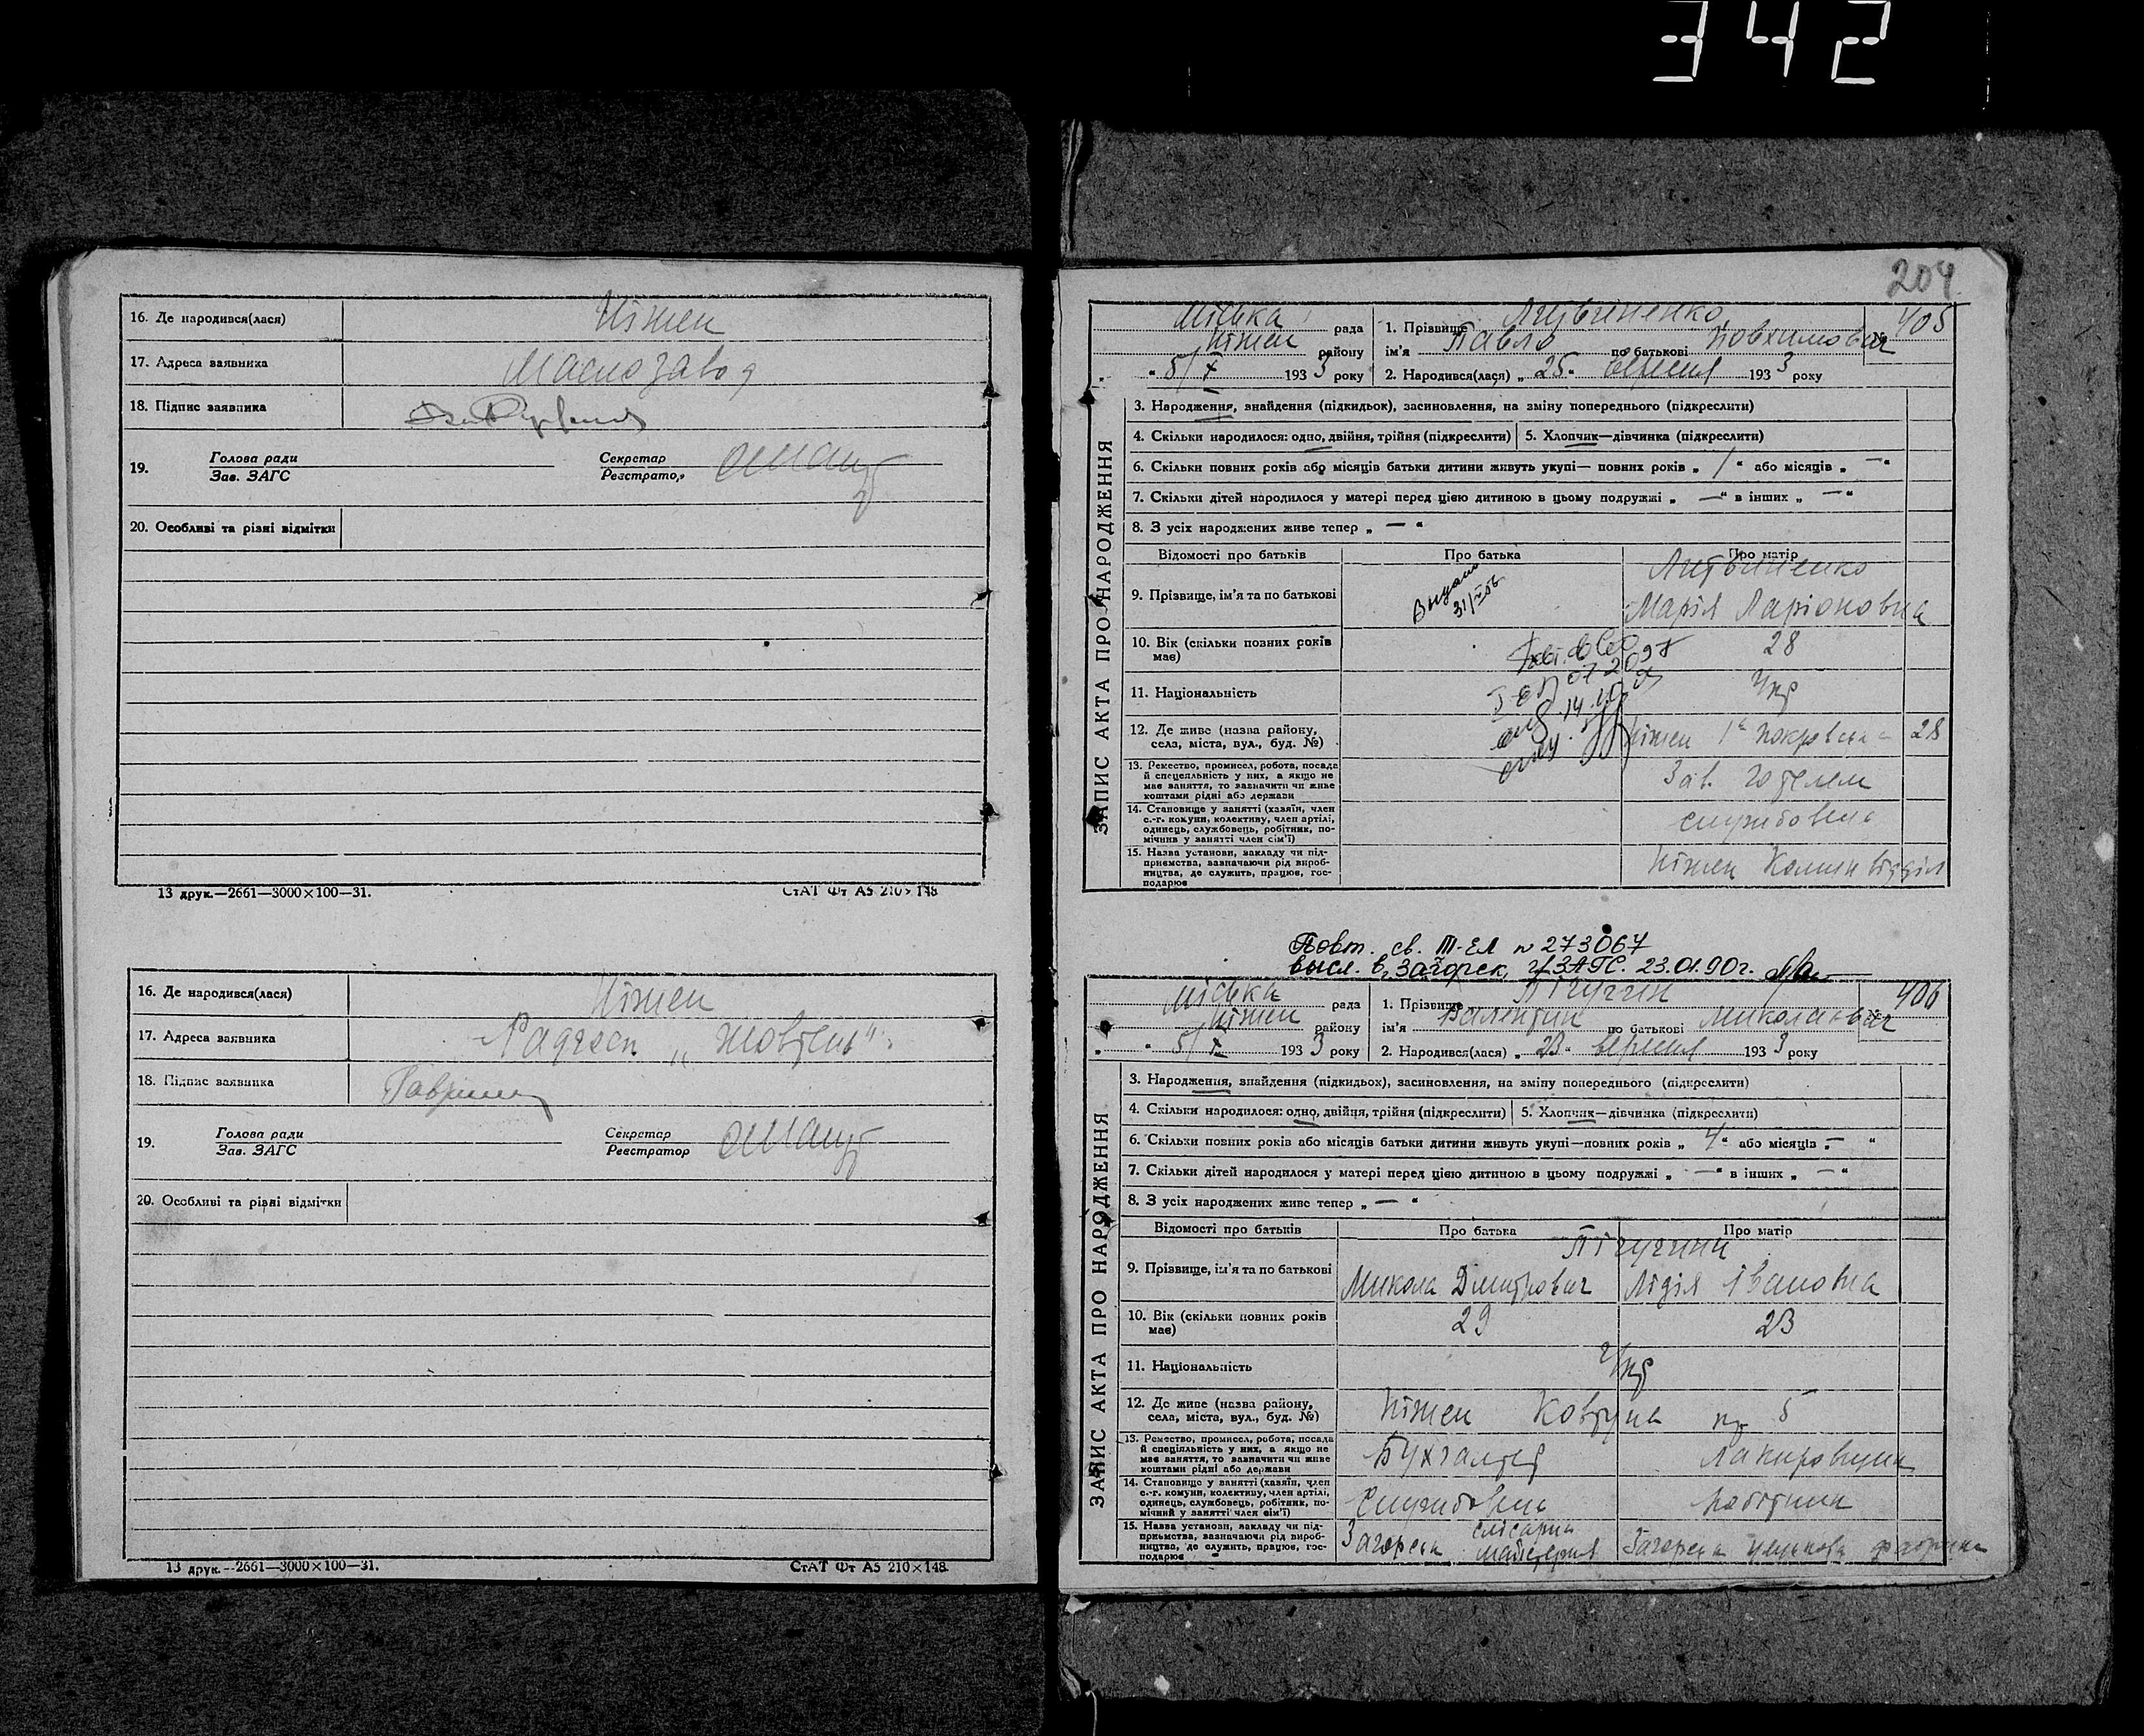 342
16. Де народився(лася) Ніжен
17. Адреса заявника Маслозавод
18. Підпис заявника
19. Голова ради Секретар
Зав. ЗАГС Реєстратор
20. Особливі та різні відмітки
13 друк.—2661—3000×100—31. СтАТ Фт А5 210×148
16. Де народився(лася) Ніжен
17. Адреса заявника Радгосп „Жовтень"
18. Підпис заявника
19. Голова ради Секретар
Зав. ЗАГС Реєстратор
20. Особливі та різні відмітки
13 друк.—2661—3000×100—31. СтАТ Фт А5 210×148
204
ЗАПИС АКТА ПРО НАРОДЖЕННЯ
Міська рада 1. Прізвище Литвиненко № 405
Ніжен району ім'я Павло по батькові Йовхимович
„ " 5/X 1933 року 2. Народився(лася) „ 25 " вересня 1933 року
3. Народження, знайдення (підкидьок), засиновлення, на зміну попереднього (підкреслити)
4. Скільки народилося: одно, двійня, трійня (підкреслити) 5. Хлопчик—дівчинка (підкреслити)
6. Скільки повних років або місяців батьки дитини живуть укупі— повних років „ 1 " або місяців „ — "
7. Скільки дітей народилося у матері перед цією дитиною в цьому подружжі „ — " в інших „ — "
8. З усіх народжених живе тепер „ — "
Відомості про батьків Про батька Про матір
9. Прізвище, ім'я та по батькові Выдано Литвиненко
Марія Ларіоновна
10. Вік (скільки повних років має) 28
11. Національність Укр
12. Де живе (назва району, села, міста, вул., буд. №) Ніжен 1а Покровська 28
13. Ремество, промисел, робота, посада й спеціяльність у них, а якщо не має заняття, то зазначити чи живе коштами рідні або держави Зав. готелем
14. Становище у занятті (хазяїн, член с.-г. комуни, колективу, член артілі, одинець, службовець, робітник, помічник у занятті член сім'ї) службовець
15. Назва установи, закладу чи підприємства, зазначаючи рід виробництва, де служить, працює, господарює Ніжен Комун відділ
Повт. св. III-ЕЛ № 273067
высл. в г. Загорск, г/ЗАГС. 23.01.90г.
ЗАПИС АКТА ПРО НАРОДЖЕННЯ
Міська рада 1. Прізвище Пічугін № 406
Ніжен району ім'я Валентин по батькові Миколаевич
„ " 5/X 1933 року 2. Народився(лася) „ 23 " вересня 1933 року
3. Народження, знайдення (підкидьок), засиновлення, на зміну попереднього (підкреслити)
4. Скільки народилося: одно, двійня, трійня (підкреслити) 5. Хлопчик—дівчинка (підкреслити)
6. Скільки повних років або місяців батьки дитини живуть укупі—повних років „ 4 " або місяців „ — "
7. Скільки дітей народилося у матері перед цією дитиною в цьому подружжі „ — " в інших „ — "
8. З усіх народжених живе тепер „ — "
Відомості про батьків Про батька Про матір
9. Прізвище, ім'я та по батькові Пічугини
Микола Дмитрович Лідія Івановна
10. Вік (скільки повних років має) 29 23
11. Національність Укр
12. Де живе (назва району, села, міста, вул., буд. №) Ніжен Ковтуна пр 5
13. Ремество, промисел, робота, посада й спеціяльність у них, а якщо не має заняття, то зазначити чи живе коштами рідні або держави Бухгалтер Лакировщик
14. Становище у занятті (хазяїн, член с.-г. комуни, колективу, член артілі, одинець, службовець, робітник, помічний у занятті член сім'ї) Службовець Робітник
15. Назва установи, закладу чи підприємства, зазначаючи рід виробництва, де служить, працює, господарює Загорська слісарна майстерня Загорська фабрика